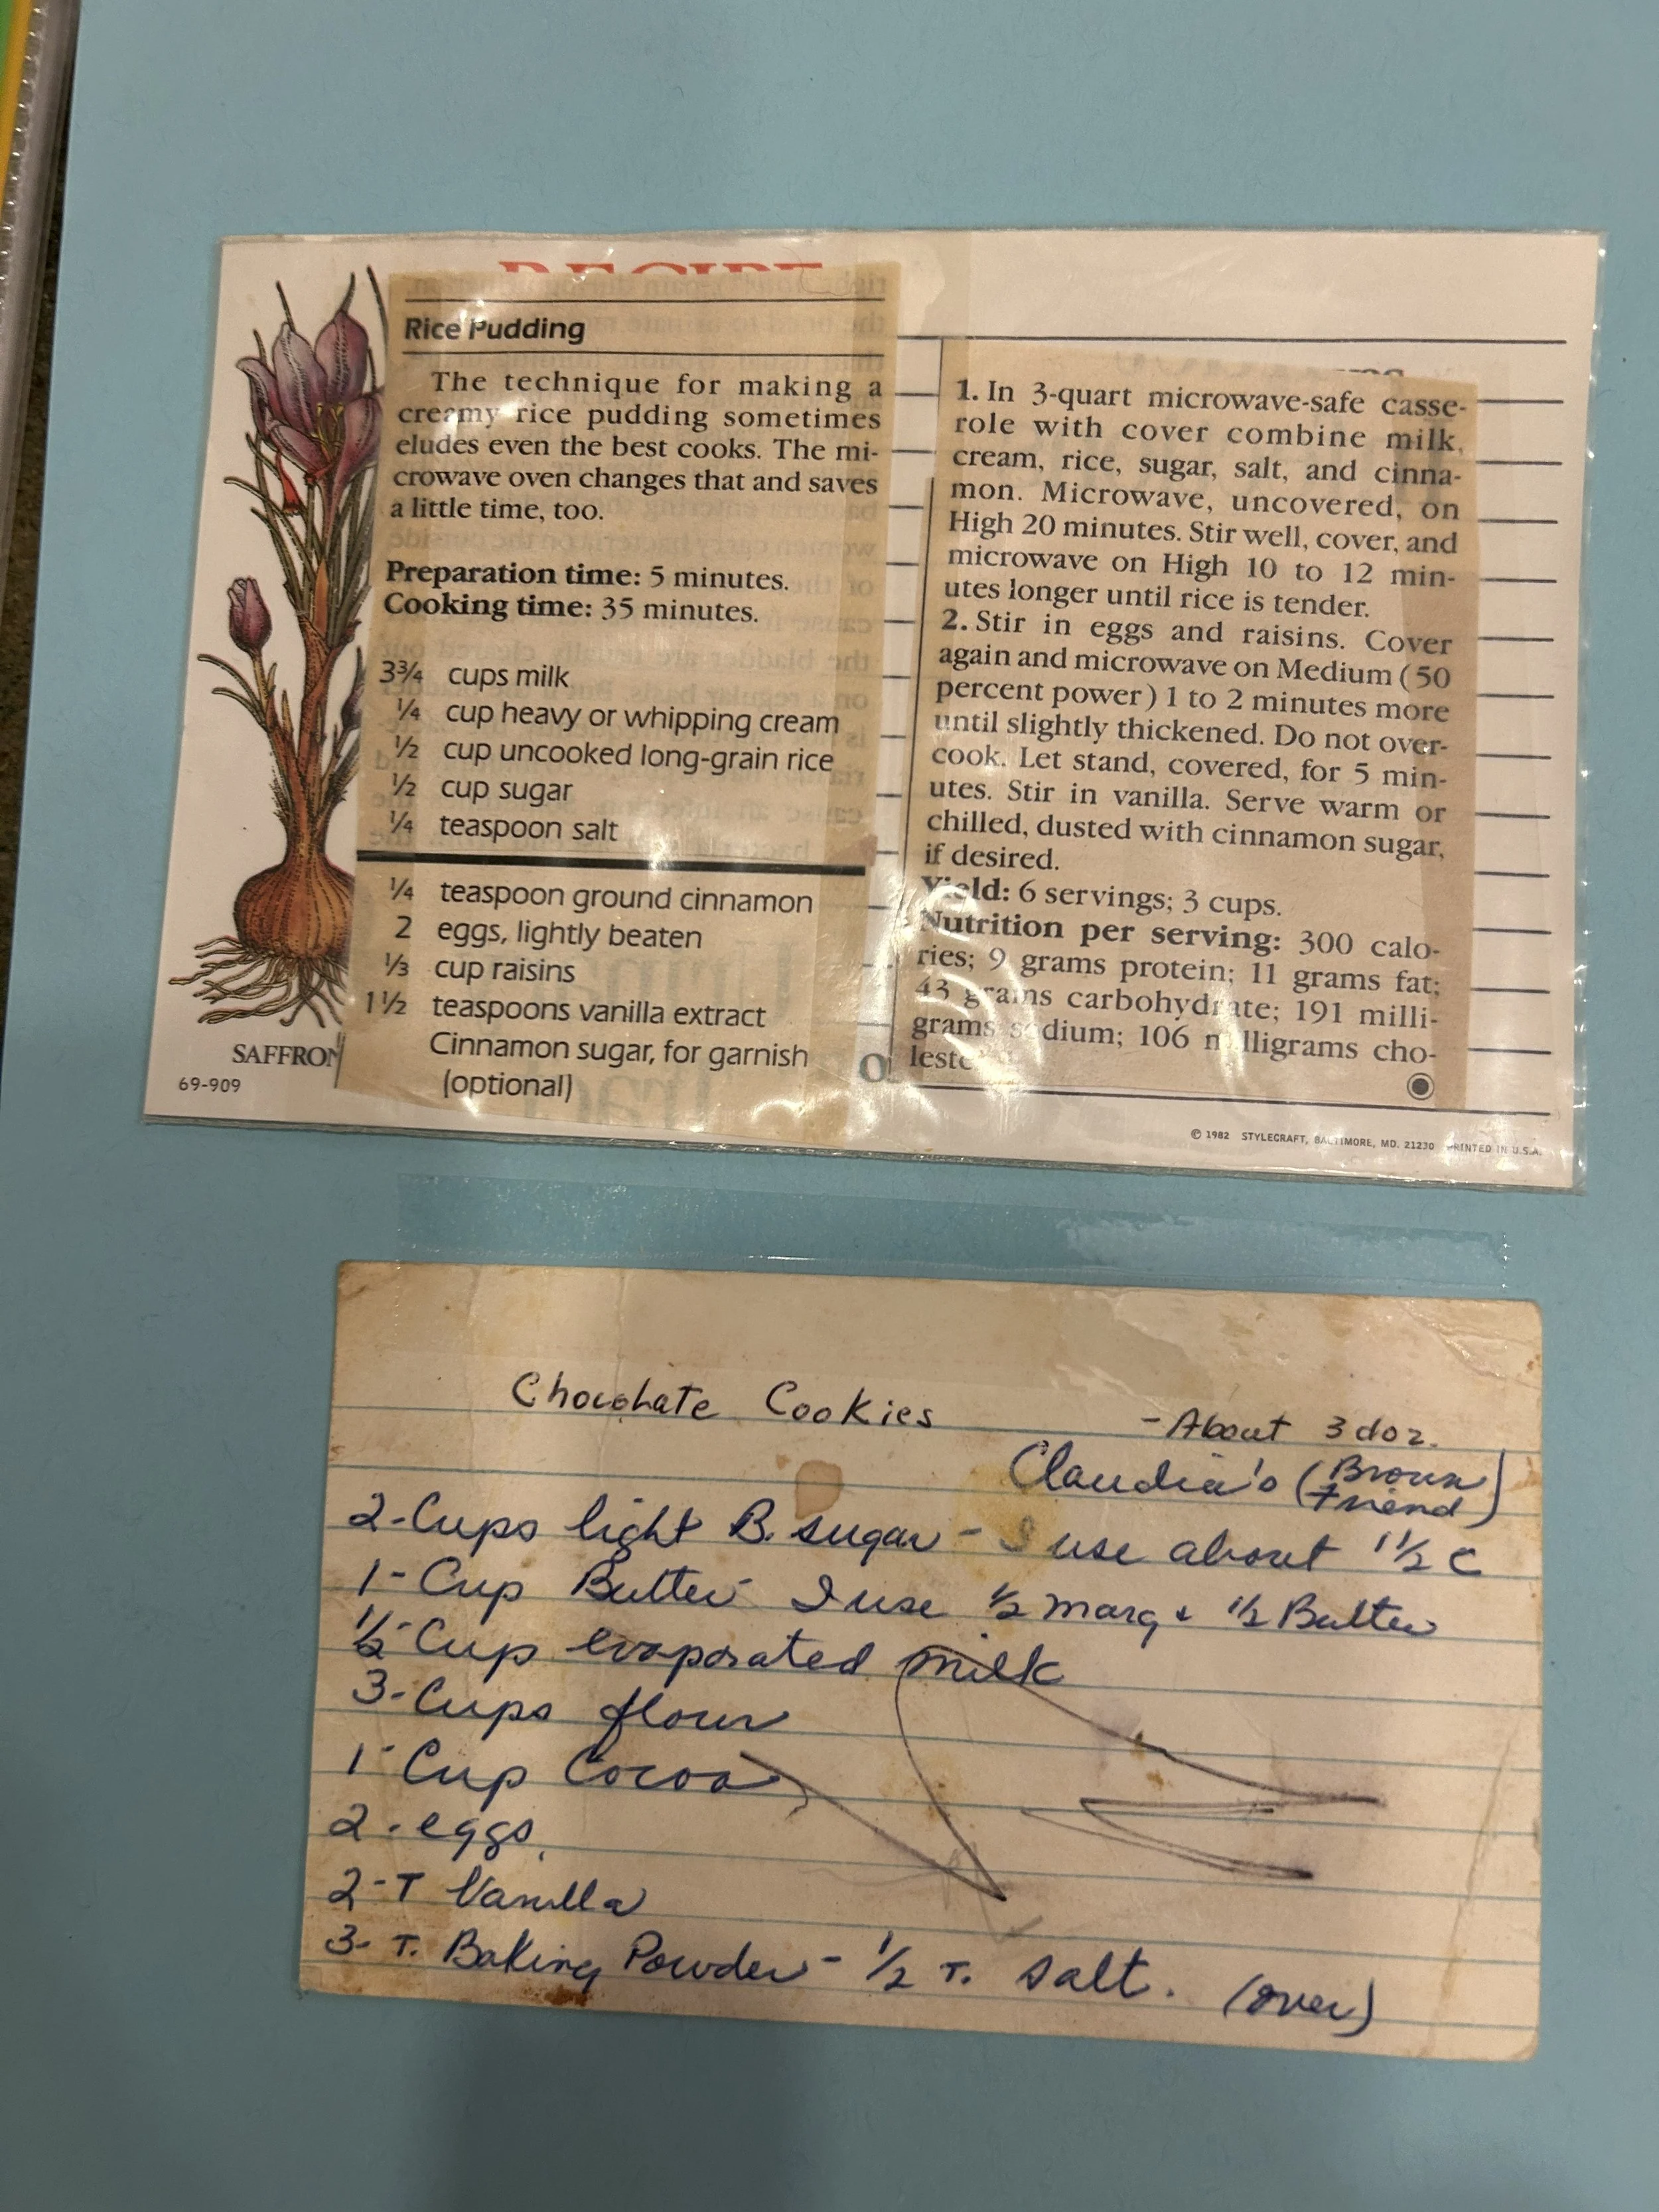 RECIPE
Rice Pudding
The technique for making a
creamy rice pudding sometimes
eludes even the best cooks. The mi-
crowave oven changes that and saves
a little time, too.
Preparation time: 5 minutes.
Cooking time: 35 minutes.
3¾ cups milk
¼ cup heavy or whipping cream
½ cup uncooked long-grain rice
½ cup sugar
¼ teaspoon salt
¼ teaspoon ground cinnamon
2 eggs, lightly beaten
⅓ cup raisins
1½ teaspoons vanilla extract
Cinnamon sugar, for garnish
(optional)
1. In 3-quart microwave-safe casse-
role with cover combine milk,
cream, rice, sugar, salt, and cinna-
mon. Microwave, uncovered, on
High 20 minutes. Stir well, cover, and
microwave on High 10 to 12 min-
utes longer until rice is tender.
2. Stir in eggs and raisins. Cover
again and microwave on Medium (50
percent power) 1 to 2 minutes more
until slightly thickened. Do not over-
cook. Let stand, covered, for 5 min-
utes. Stir in vanilla. Serve warm or
chilled, dusted with cinnamon sugar,
if desired.
Yield: 6 servings; 3 cups.
Nutrition per serving: 300 calo-
ries; 9 grams protein; 11 grams fat;
43 grams carbohydrate; 191 milli-
grams sodium; 106 milligrams cho-
leste
SAFFRON
69-909
© 1982 STYLECRAFT, BALTIMORE, MD. 21230 PRINTED IN U.S.A.
Chocohate Cookies - About 3 doz.
Claudia's (Broun Friend)
2-Cups light B. sugar - I use about 1½ C
1- Cup Butter- I use ½ marg & ½ Butter
½-Cup evaporated milk
3-Cups flour
1-Cup Cocoa
2-eggs.
2-T Vanilla
3-T. Baking Powder- ½ T. salt. (over)